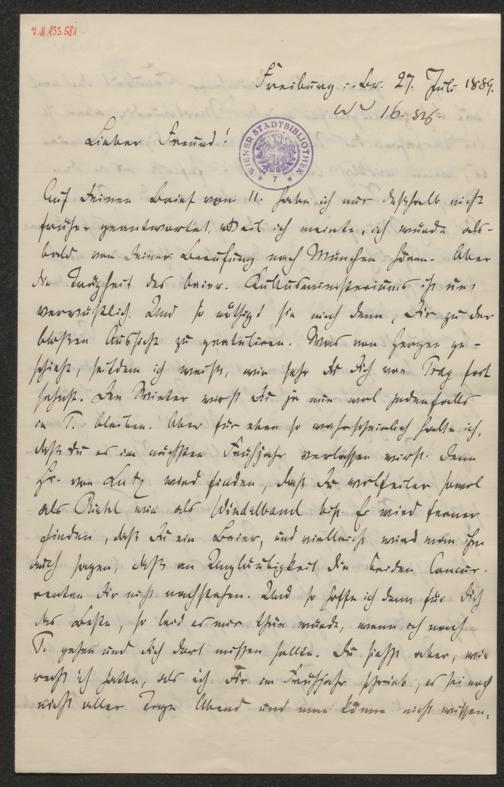 J.N 133.581
Freiburg i. Br. 27. Juli 1889.
16.
WIENER STADTBIBLIOTHEK
7
Lieber Freund!
Auf Deinen Brief vom 11. habe ich nur deßhalb nicht
früher geantwortet, weil ich meinte, ich würde als-
bald von Deiner Berufung nach München hören. Aber
die Trägheit des baier. Kultusministeriums ist un-
verwüstlich. Und so nöthigt sie mich denn, Dir zu der
bloßen Aussicht zu gratuliren. Was von Herzen ge-
schieht, seitdem ich weiß, wie sehr Du Dich von Prag fort
sehnst. Den Winter wirst Du ja nun wol jedenfalls
in P. bleiben. Aber für eben so wahrscheinlich halte ich,
daß Du es im nächsten Frühjahr verlassen wirst. Denn
Hr. von Lutz wird finden, daß Du wolfeiler sowol
als Riehl wie als Windelband bist. Er wird ferner
finden, daß Du ein Baier, und vielleicht wird man ihm
auch sagen, daß an Ungläubigkeit die beiden Concur-
renten Dir nicht nachstehen. Und so hoffe ich denn für Dich
das Beste, so leid es mir thun würde, wenn ich nach
P. gehen und Dich dort missen sollte. Du siehst aber, wie
recht ich hatte, als ich Dir im Frühjahr schrieb, es sei noch
nicht aller Tage Abend und man könne nicht wissen,